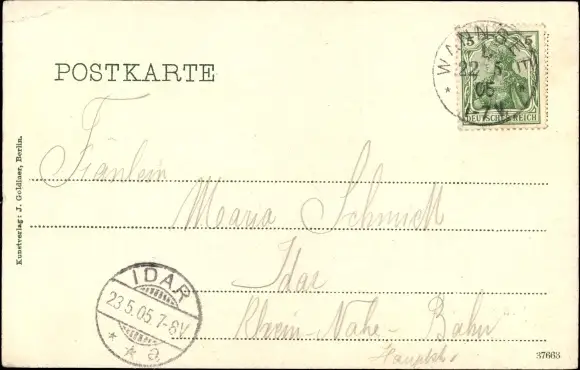 POSTKARTE
5 5
DEUTSCHES REICH
WANNSEE
22 5
05
Fräulein
Maria Schmidt
Idar
Rhein-Nahe-Bahn
IDAR
23.5.05.7-8V
* * a
Kunstverlag: J. Goldiner, Berlin.
37663